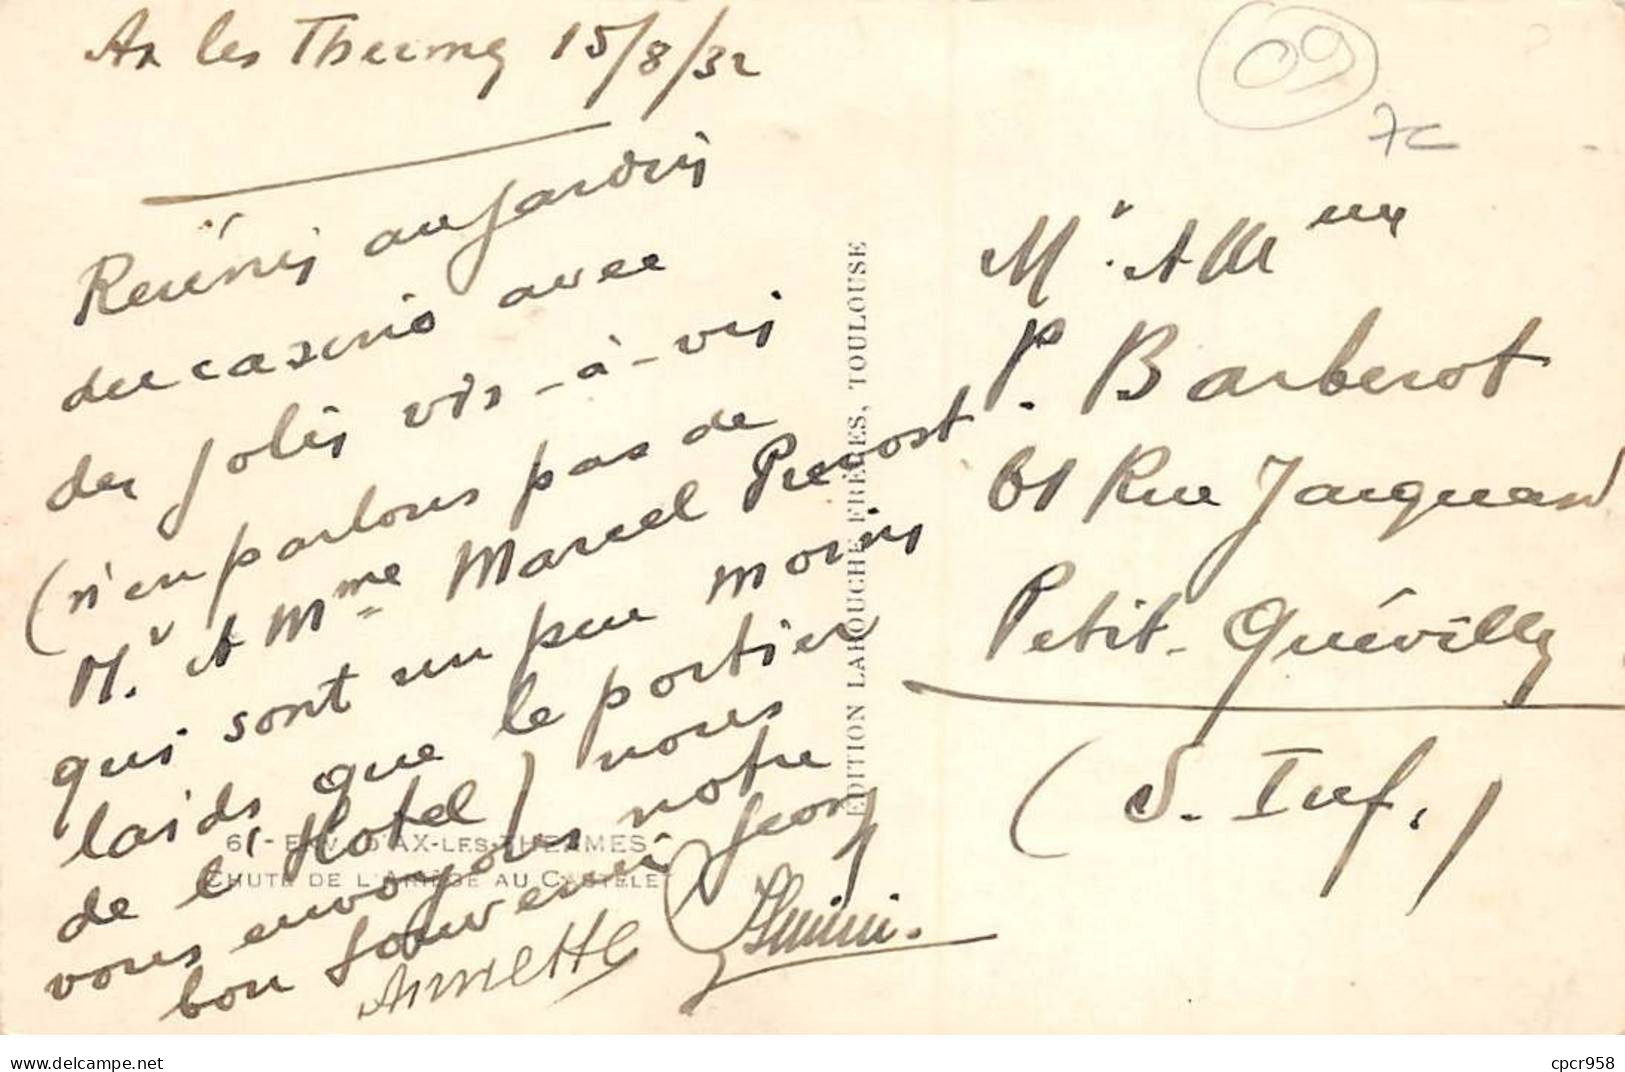 Ax les Thermes 15/8/32
Réunis au Jardin
du casino avec
des jolis vis-à-vis
(n'en parlons pas de
Mr. & Mme Marcel Prevost
qui sont un peu moins
laids que le portier
de l'Hotel) nous
vous envoyons notre
bon souvenir Georg
Annette Mimi.
61 - ENV. D'AX-LES-THERMES
CHUTE DE L'ARIÈGE AU CASTELET
EDITION LABOUCHE FRÈRES, TOULOUSE
09
7C
Mr. & Mme
P. Barberot
61 Rue Jacquard
Petit-Quévilly
(S. Inf.)
www.delcampe.net
cpcr958